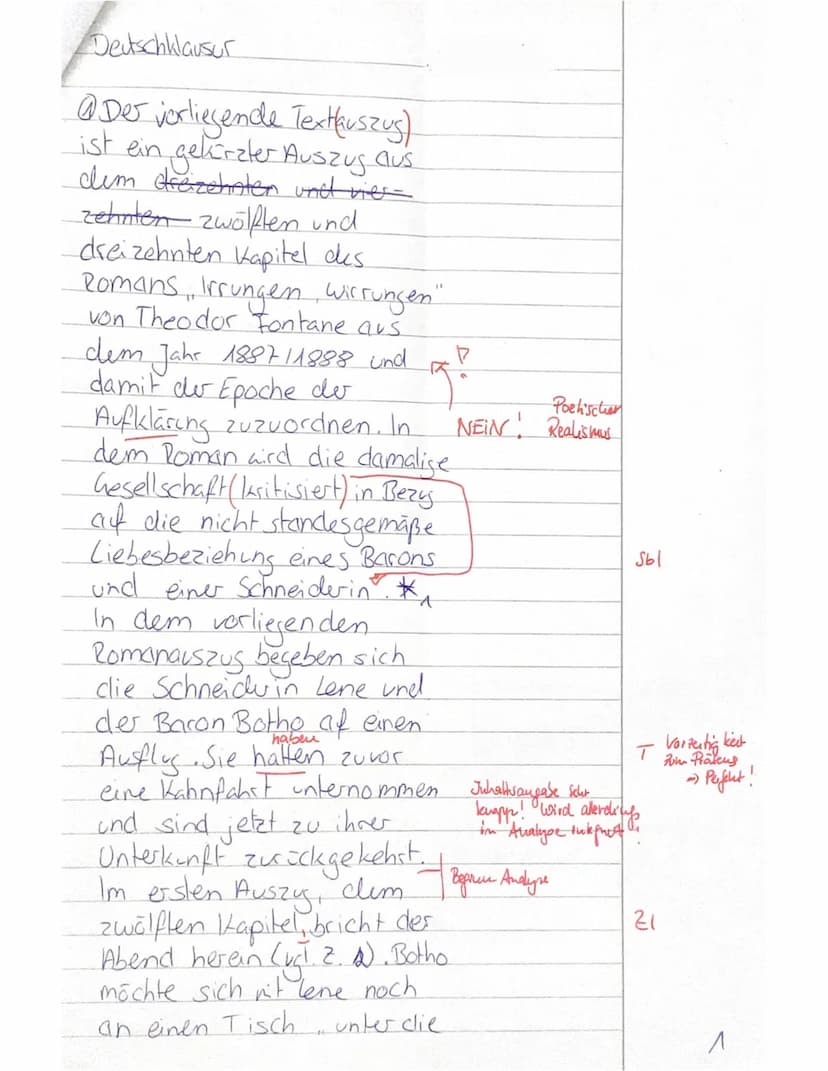 Deutschklausur
① Der vorliegende Text(auszug)
ist ein gekürzter Auszug aus
dem dreizehnten und vier-
zehnten zwölften und
dreizehnten Kapitel des
Romans „Irrungen, Wirrungen"
von Theodor Fontane aus
dem Jahr 1887/1888 und
damit der Epoche der
Aufklärung zuzuordnen. In NEIN! Poetischer Realismus
dem Roman wird die damalige
Gesellschaft (kritisiert) in Bezug
auf die nicht standesgemäße
Liebesbeziehung eines Barons Sbl
und einer Schneiderin. *1
In dem vorliegenden
Romanauszug begeben sich
die Schneiderin Lene und
der Baron Botho auf einen
haben
Ausflug. Sie hatten zuvor T Vorzeitigkeit zum Präsens => Perfekt!
eine Kahnfahrt unternommen Inhaltsangabe sehr
und sind jetzt zu ihrer knapp! Wird allerdings
in Analyse
Unterkunft zurückgekehrt.
Im ersten Auszug, dem Beginn Analyse
zwölften Kapitel, bricht der Z1
Abend herein (vgl. Z. 1). Botho
möchte sich mit Lene noch
an einen Tisch „unter die
1